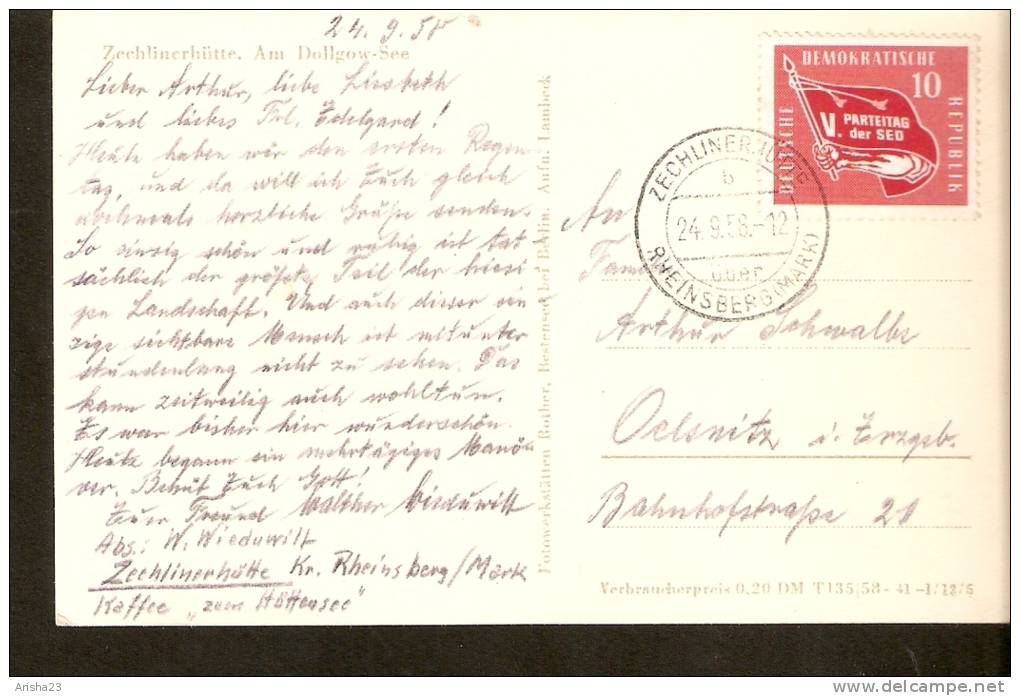 24.9.58
Zechlinerhütte, Am Dollgow-See
Lieber Arthur, liebe Liesbeth
und liebes Frl. Edelgard!
Heute haben wir den ersten Regen
tag, und da will ich Euch gleich
nochmals herzliche Grüße senden.
So einzig schön und ruhig ist tat
sächlich der größte Teil der hiesi
gen Landschaft. Und auch dieser ein
zige sichtbare Mensch ist mitunter
stundenlang nicht zu sehen. Das
kann zeitweilig auch wohltun.
Es war bisher hier wunderschön.
Heute begann ein mehrtägiges Manö-
ver. Behüt Euch Gott!
Euer Freund Walther Wieduwilt
Abs.: W. Wieduwilt
Zechlinerhütte Kr. Rheinsberg/Mark
Kaffee "zum Hüttensee"
Fotowerkstätten Rother, Bestensee bei Berlin. Aufn. Lambeck
DEUTSCHE DEMOKRATISCHE REPUBLIK
10
V. PARTEITAG
der SED
ZECHLINERHÜTTE
b
24.9.58.-12
über
RHEINSBERG (MARK)
An
Fam.
Arthur Schwalbe
Oelsnitz i. Erzgeb.
Bahnhofstraße 20
Verbraucherpreis 0,20 DM T 135/58 - 41 -1/12/5
Arisha23
www.delcampe.net